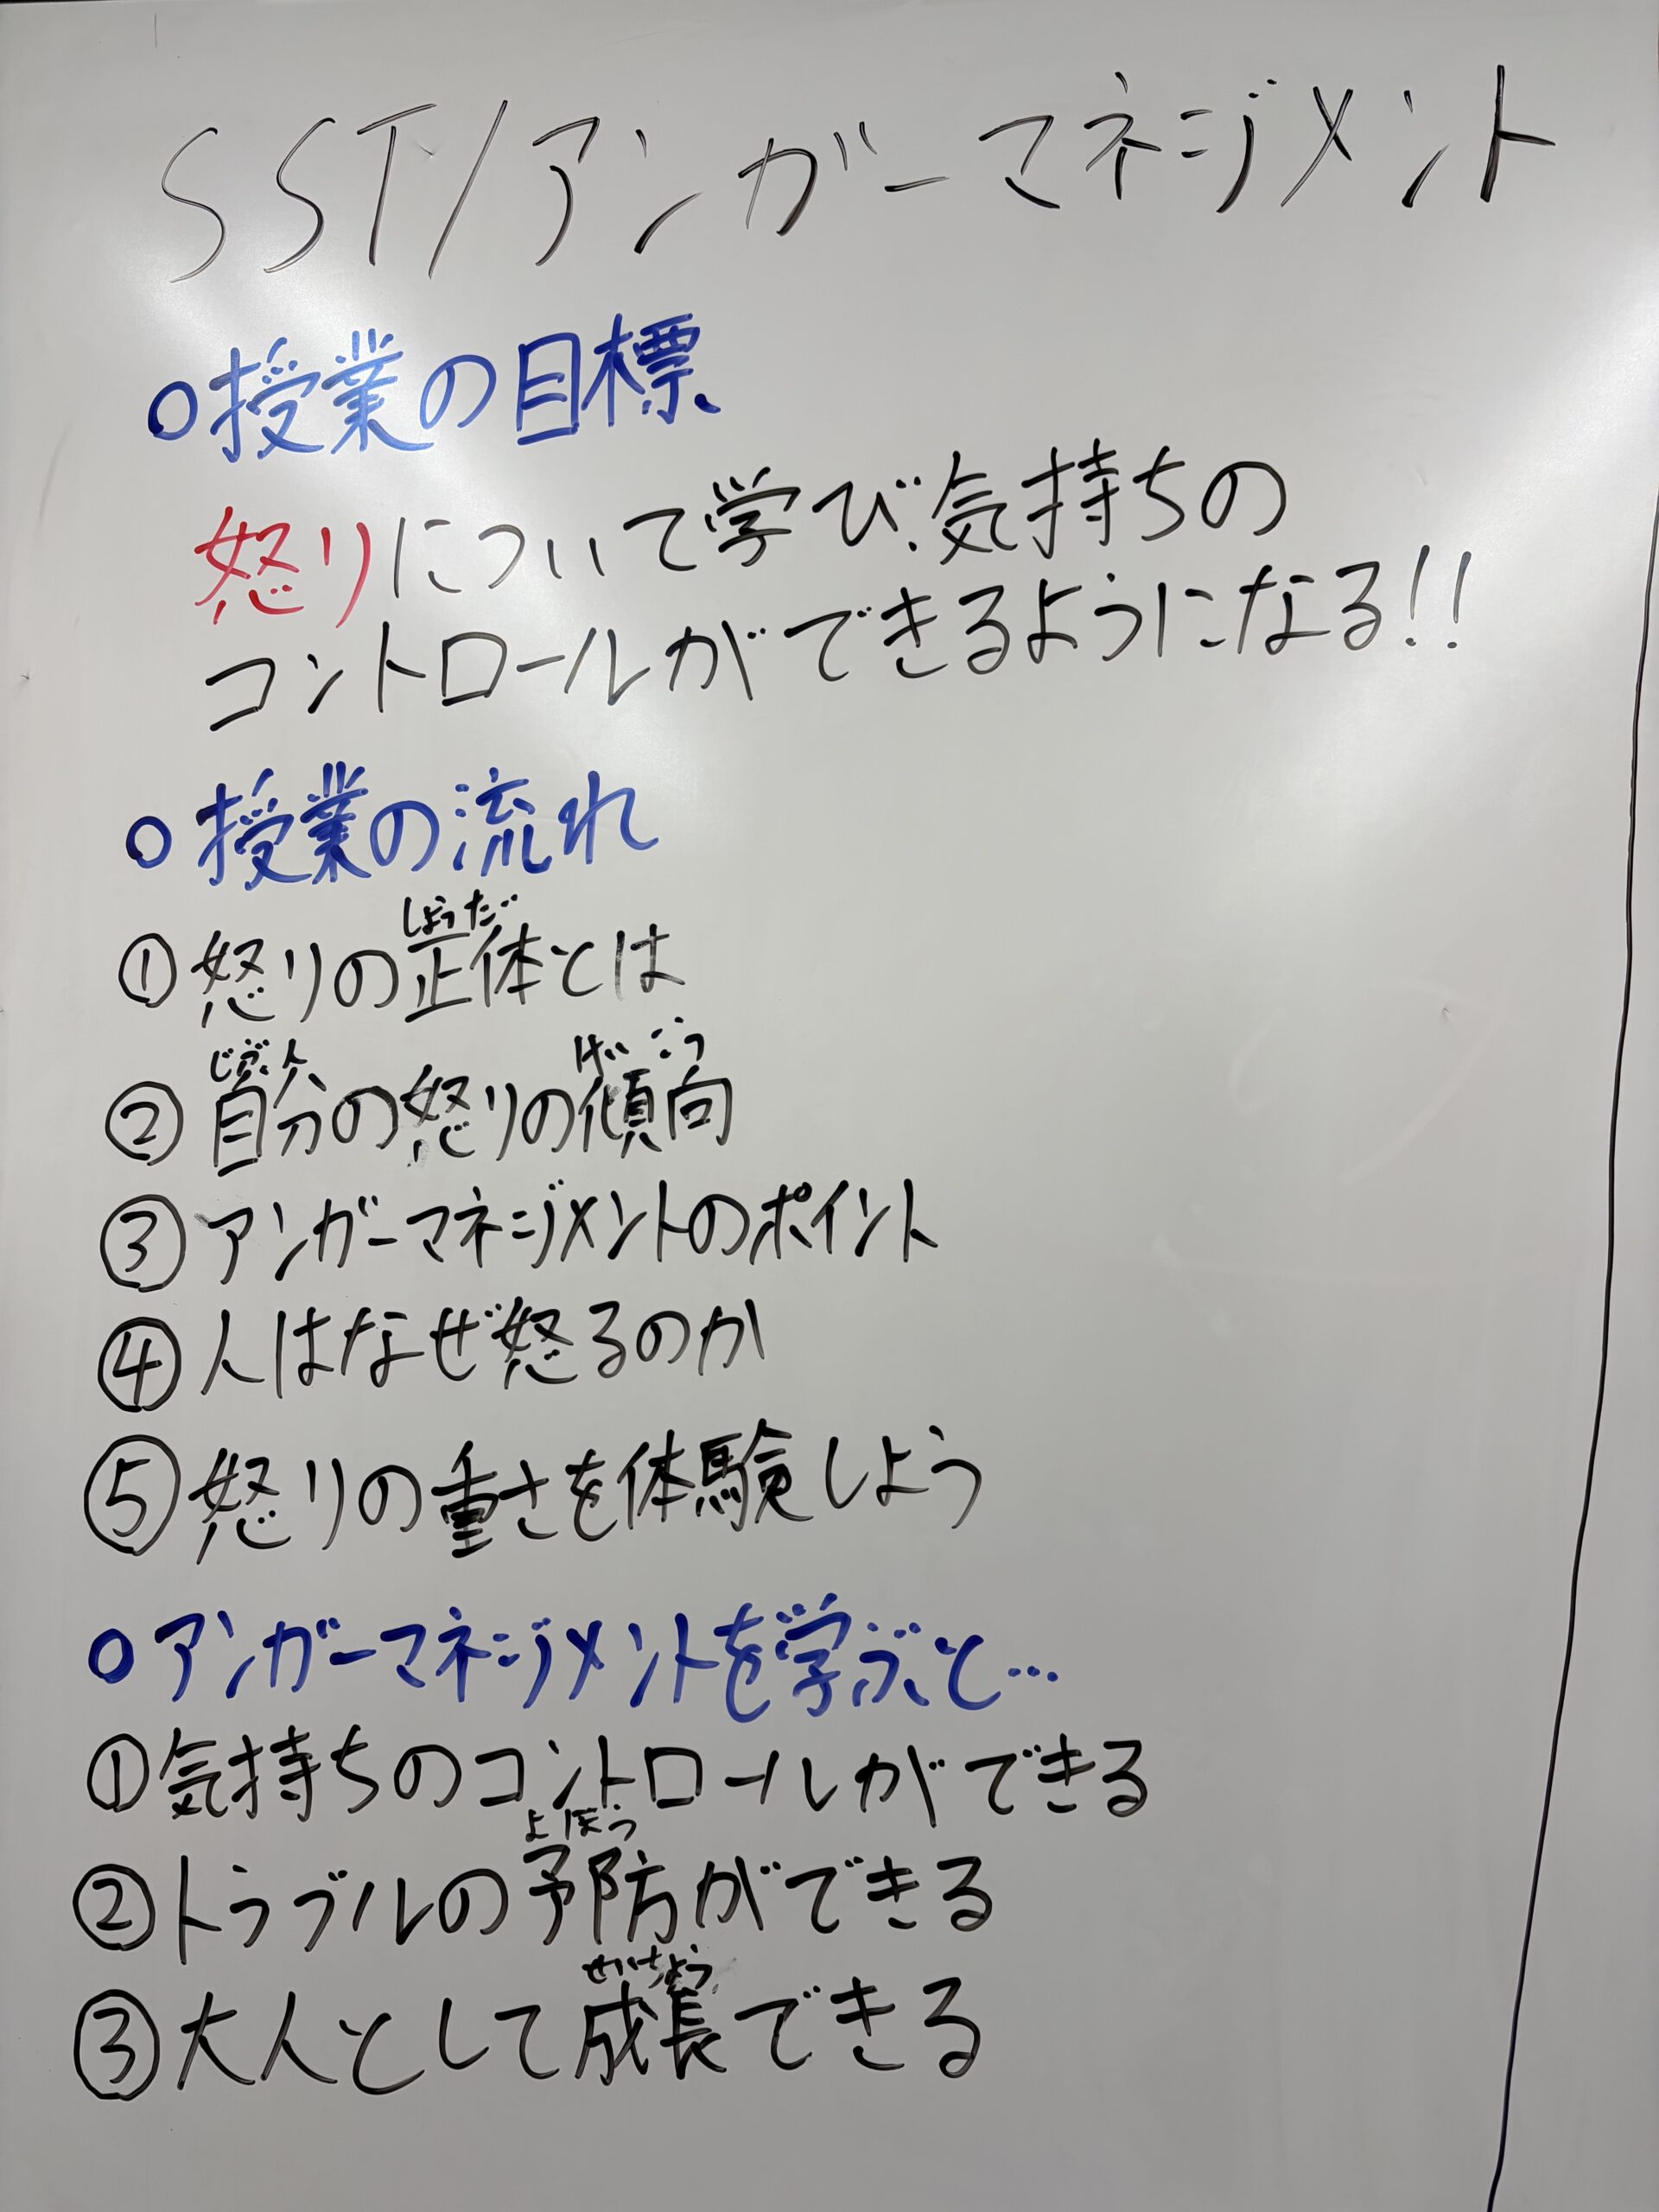 SST/アンガーマネジメント
○授業の目標
怒りについて学び、気持ちの
コントロールができるようになる!!
○授業の流れ
しょうたい
①怒りの正体とは
じぶん けいこう
②自分の怒りの傾向
③アンガーマネジメントのポイント
④人はなぜ怒るのか
⑤怒りの重さを体験しよう
○アンガーマネジメントを学ぶと…
①気持ちのコントロールができる
よぼう
②トラブルの予防ができる
せいちょう
③大人として成長できる